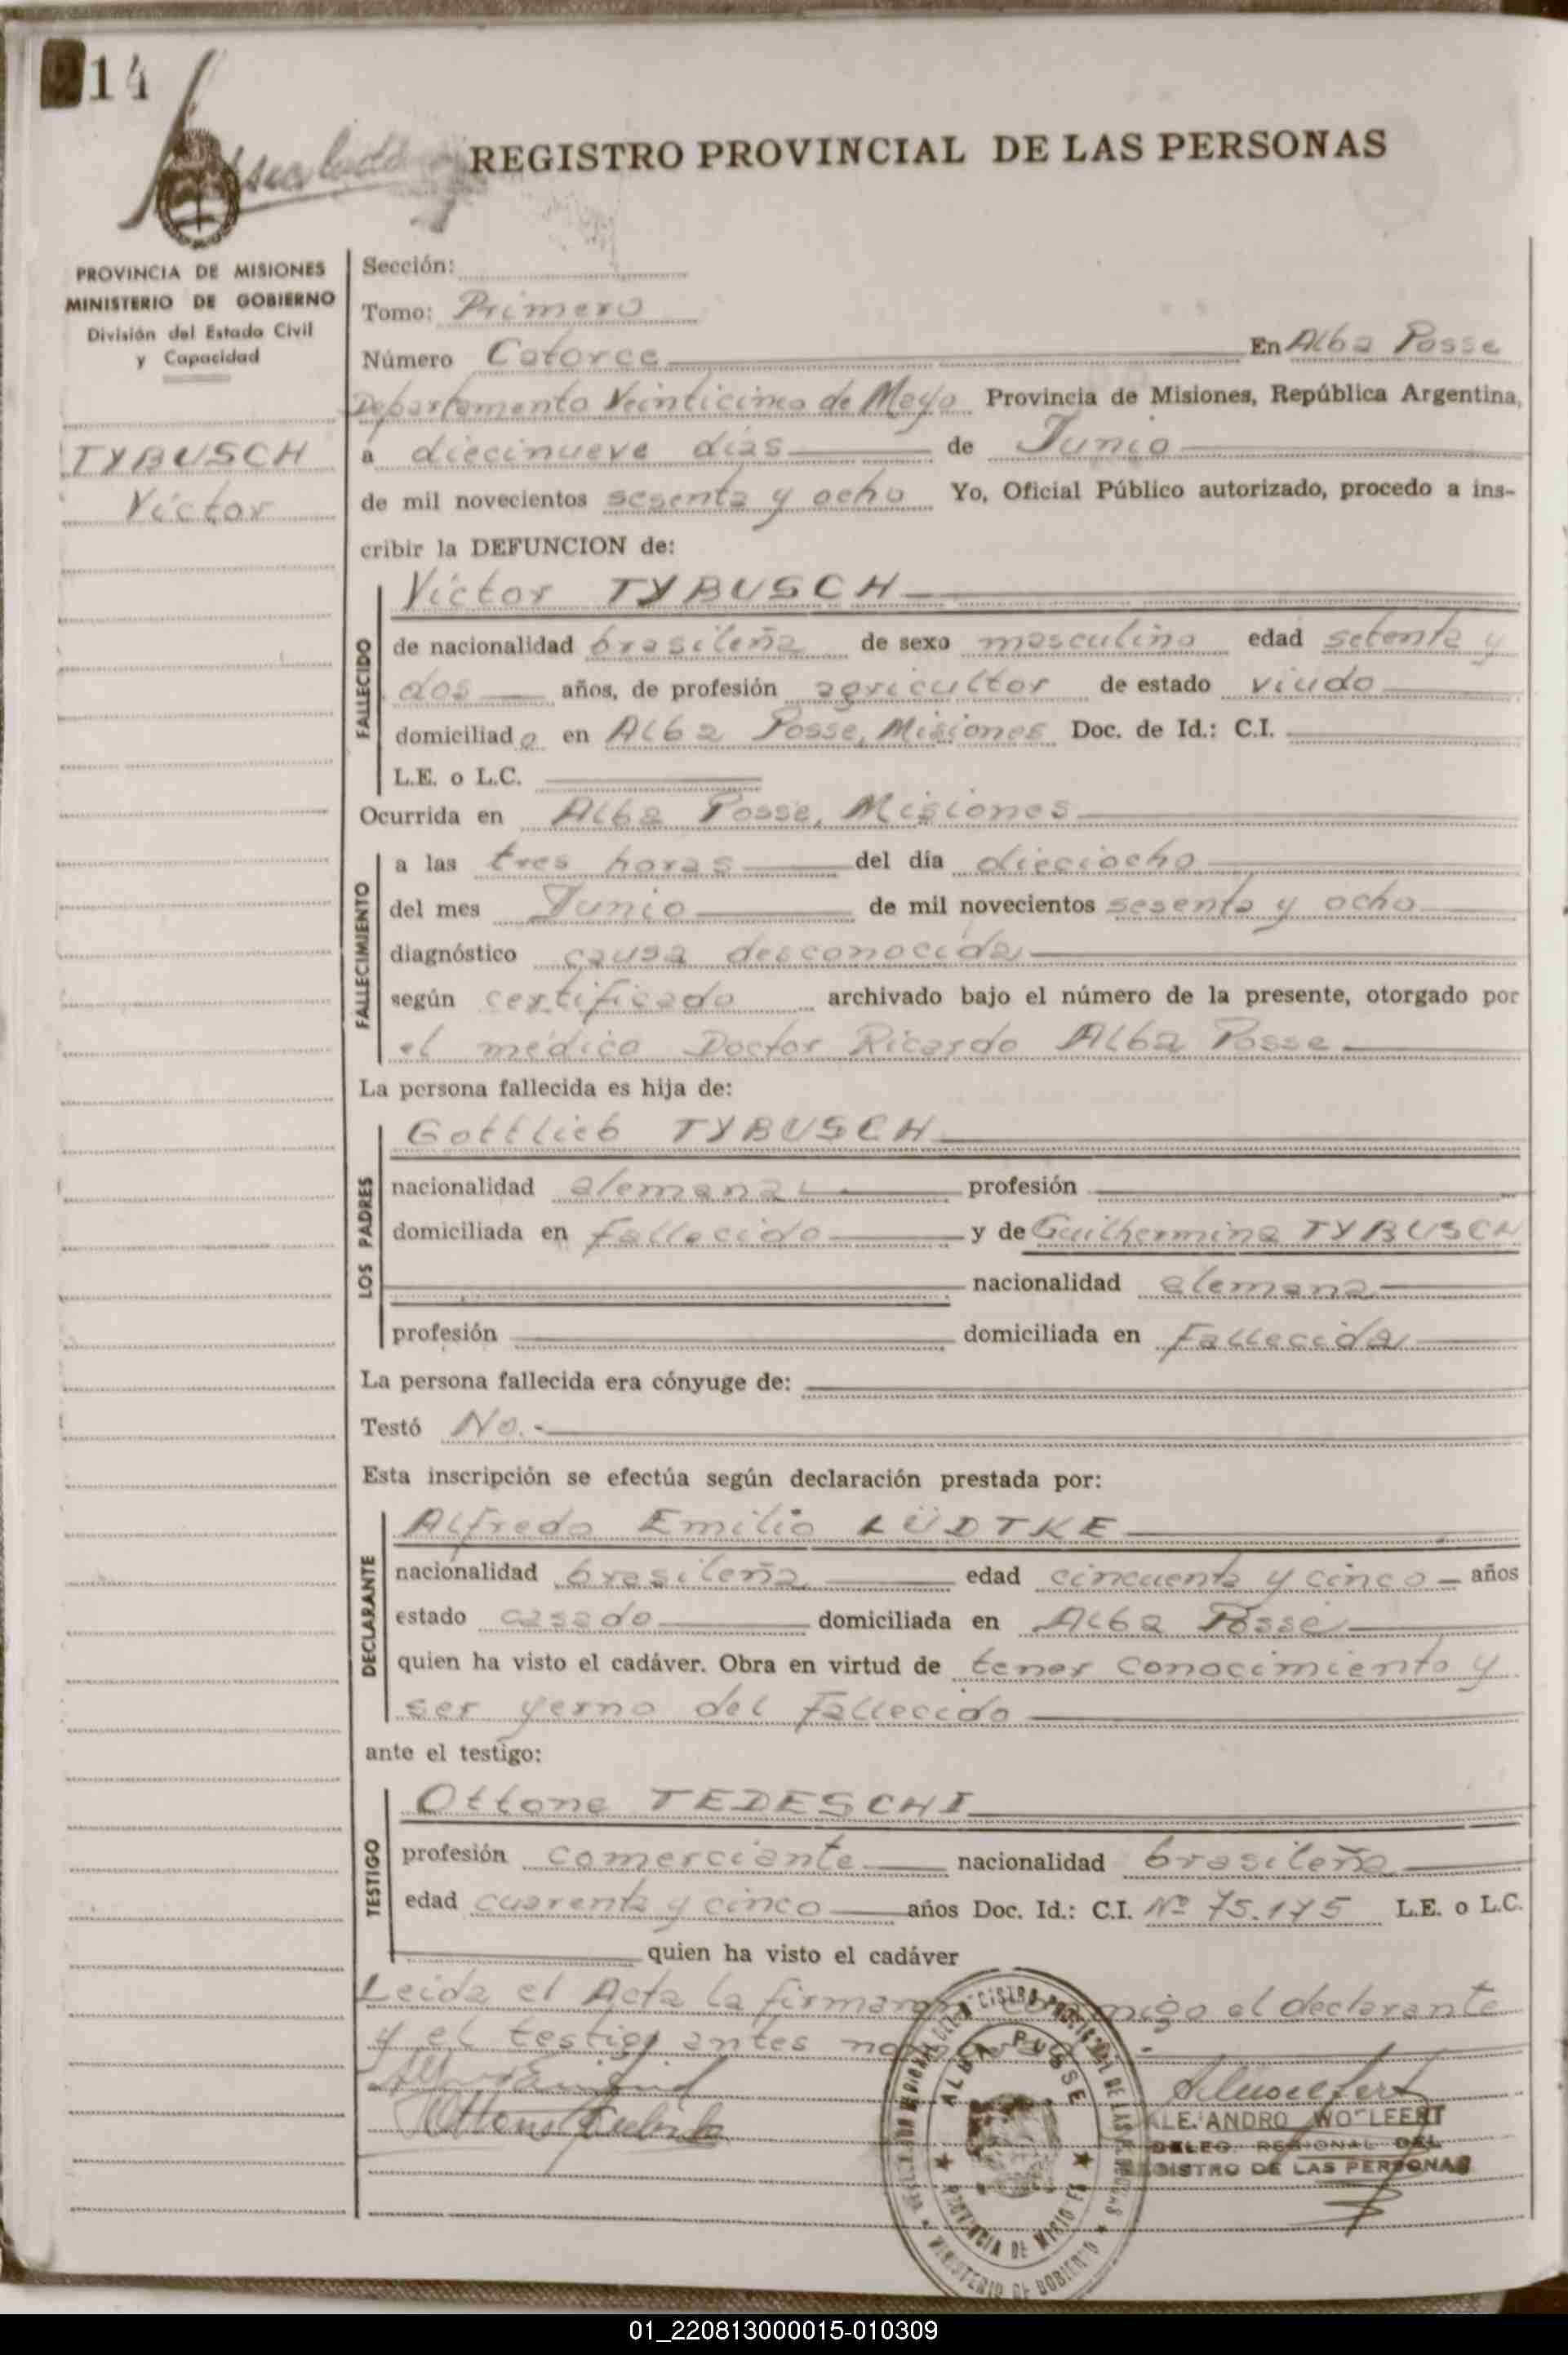 14
REGISTRO PROVINCIAL DE LAS PERSONAS
PROVINCIA DE MISIONES
MINISTERIO DE GOBIERNO
División del Estado Civil
y Capacidad
TYBUSCH
Víctor
Sección:
Tomo: Primero
Número Catorce En Alba Posse
Departamento Veinticinco de Mayo Provincia de Misiones, República Argentina,
a diecinueve días de Junio
de mil novecientos sesenta y ocho Yo, Oficial Público autorizado, procedo a ins-
cribir la DEFUNCION de:
Víctor TYBUSCH
FALLECIDO
de nacionalidad brasileña de sexo masculino edad setenta y
dos años, de profesión agricultor de estado viudo
domiciliado en Alba Posse, Misiones Doc. de Id.: C.I.
L.E. o L.C.
Ocurrida en Alba Posse, Misiones
FALLECIMIENTO
a las tres horas del día dieciocho
del mes Junio de mil novecientos sesenta y ocho
diagnóstico causa desconocida
según certificado archivado bajo el número de la presente, otorgado por
el médico Doctor Ricardo Alba Posse
La persona fallecida es hija de:
LOS PADRES
Gottlieb TYBUSCH
nacionalidad alemana profesión
domiciliada en fallecido y de Guilhermina TYBUSCH
nacionalidad alemana
profesión domiciliada en Fallecida
La persona fallecida era cónyuge de:
Testó No.-
Esta inscripción se efectúa según declaración prestada por:
DECLARANTE
Alfredo Emilio LÜDTKE
nacionalidad brasileña edad cincuenta y cinco años
estado casado domiciliada en Alba Posse
quien ha visto el cadáver. Obra en virtud de tener conocimiento y
ser yerno del Fallecido
ante el testigo:
TESTIGO
Ottone TEDESCHI
profesión comerciante nacionalidad brasileña
edad cuarenta y cinco años Doc. Id.: C.I. Nº 75.175 L.E. o L.C.
quien ha visto el cadáver
Leída el Acta la firmaron conmigo el declarante
y el testigo antes
ALBA POSSE
PROVINCIA DE MISIONES
MINISTERIO DE GOBIERNO
ALEJANDRO WOLFEERT
DELEG. REGIONAL DEL
REGISTRO DE LAS PERSONAS
01_220813000015-010309